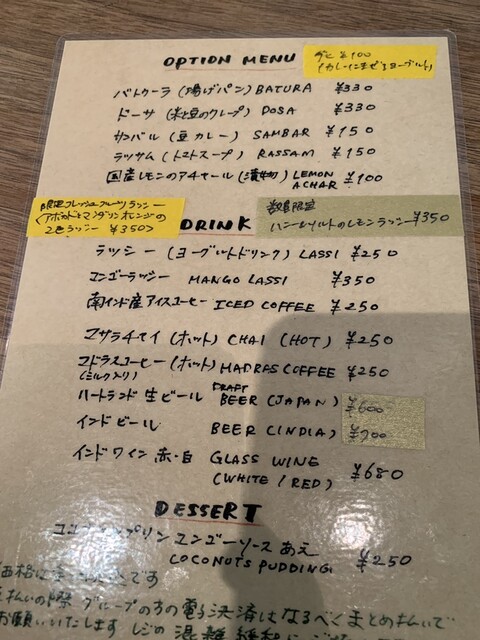 OPTION MENU
ダヒ ¥100
(カレーにまぜるヨーグルト)
バトゥーラ (揚げパン) BATURA ¥330
ドーサ (米と豆のクレープ) DOSA ¥330
サンバル (豆カレー) SAMBAR ¥150
ラッサム (トマトスープ) RASSAM ¥150
国産レモンのアチャール (漬物) LEMON ACHAR ¥100
限定フレッシュフルーツラッシー
(アボカドとマンダリンオレンジの
2色ラッシー ¥350)
DRINK
数量限定
ハニー&ソルトのレモンラッシー ¥350
ラッシー (ヨーグルトドリンク) LASSI ¥250
マンゴーラッシー MANGO LASSI ¥350
南インド産アイスコーヒー ICED COFFEE ¥250
マサラチャイ (ホット) CHAI (HOT) ¥250
マドラスコーヒー (ホット) MADRAS COFFEE ¥250
(ミルク入り)
ハートランド生ビール DRAFT BEER (JAPAN) ¥600
インドビール BEER (INDIA) ¥700
インドワイン 赤・白 GLASS WINE
(WHITE / RED) ¥680
DESSERT
ココナッツプリン マンゴーソースあえ
COCONUTS PUDDING ¥250
です
払いの際、グループの方の電子決済はなるべくまとめ払いで
お願いいたします レジの混雑緩和に